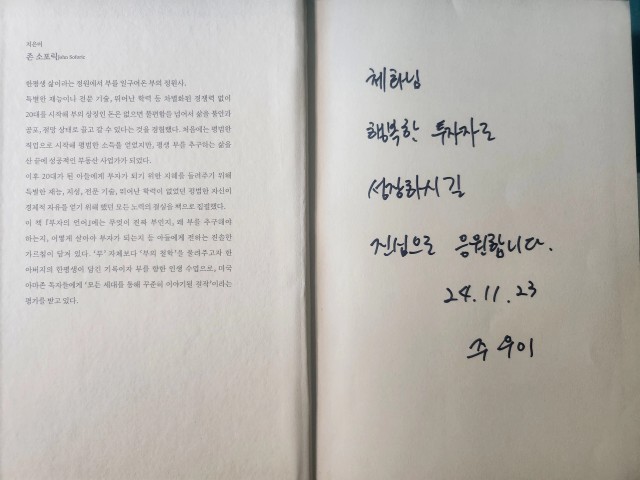 지은이
존 소포릭John Soforic
한평생 삶이라는 정원에서 부를 일구어온 부의 정원사.
특별한 재능이나 전문 기술, 뛰어난 학력 등 차별화된 경쟁력 없이
20대를 시작해 부의 상징인 돈은 없으면 불편함을 넘어서 삶을 불안과
공포, 절망 상태로 끌고 갈 수 있다는 것을 경험했다. 처음에는 평범한
직업으로 시작해 평범한 소득을 얻었지만, 평생 부를 추구하는 삶을
산 끝에 성공적인 부동산 사업가가 되었다.
이후 20대가 된 아들에게 부자가 되기 위한 지혜를 들려주기 위해
특별한 재능, 지성, 전문 기술, 뛰어난 학력이 없었던 평범한 자신이
경제적 자유를 얻기 위해 했던 모든 노력의 결실을 책으로 집필했다.
이 책 『부자의 언어』에는 무엇이 진짜 부인지, 왜 부를 추구해야
하는지, 어떻게 살아야 부자가 되는지 등 아들에게 전하는 진솔한
가르침이 담겨 있다. '부' 자체보다 '부의 철학'을 물려주고자 한
아버지의 한평생이 담긴 기록이자 부를 향한 인생 수업으로, 미국
아마존 독자들에게 '모든 세대를 통해 꾸준히 이야기될 걸작'이라는
평가를 받고 있다.
체화님
행복한 투자자로
성장하시길
진심으로 응원합니다.
24.11.23
주우이